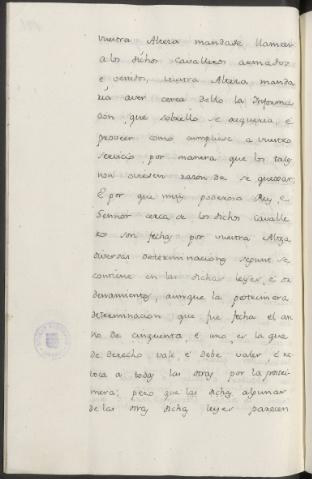 vuestra Alteza mandase llamar
a los dichos Cavalleros armados
e venidos, vuestra Alteza manda
ria aver cerca dello la Informa
cion, que sobrello se requeria, e
proveer como cumpliese a vuestro
servicio, por manera que los tales
non oviesen razon de se quexar.
E por que muy poderoso Rey, e
Sennor cerca de los dichos Cavalle
ros son fechas por vuestra Alteza
diversas determinaciones segunt se
contiene en las dichas leyes, e or
denamientos, aunque la postrimera
determinacion, que fue fecha el an
no de cinquenta, e uno, es la que
de derecho vale, e debe valer, e re
voca a todas las otras por la postri
mera; pero que las dichas algunas
de las otras dichas leyes parecen